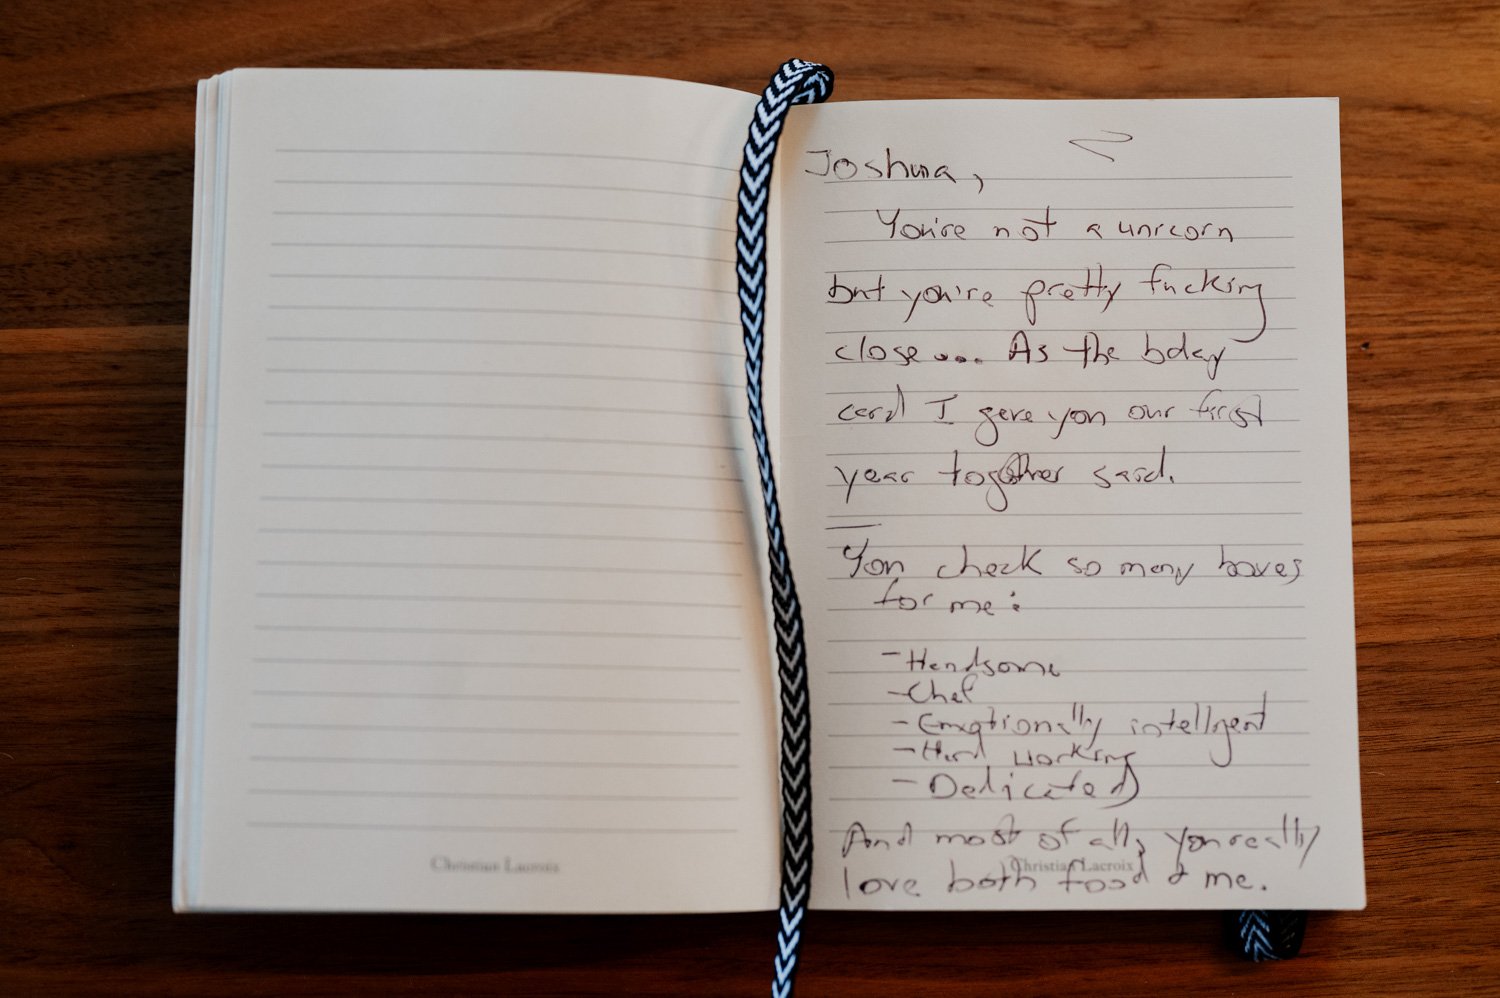 Joshua,
You're not a unicorn
but you're pretty fucking
close... As the bday
card I gave you our first
year together said.
You check so many boxes
for me:
- Handsome
- Chef
- Emotionally intelligent
- Hard working
- Dedicated
And most of all, you really
love both food & me.
Christian Lacroix
Christian Lacroix